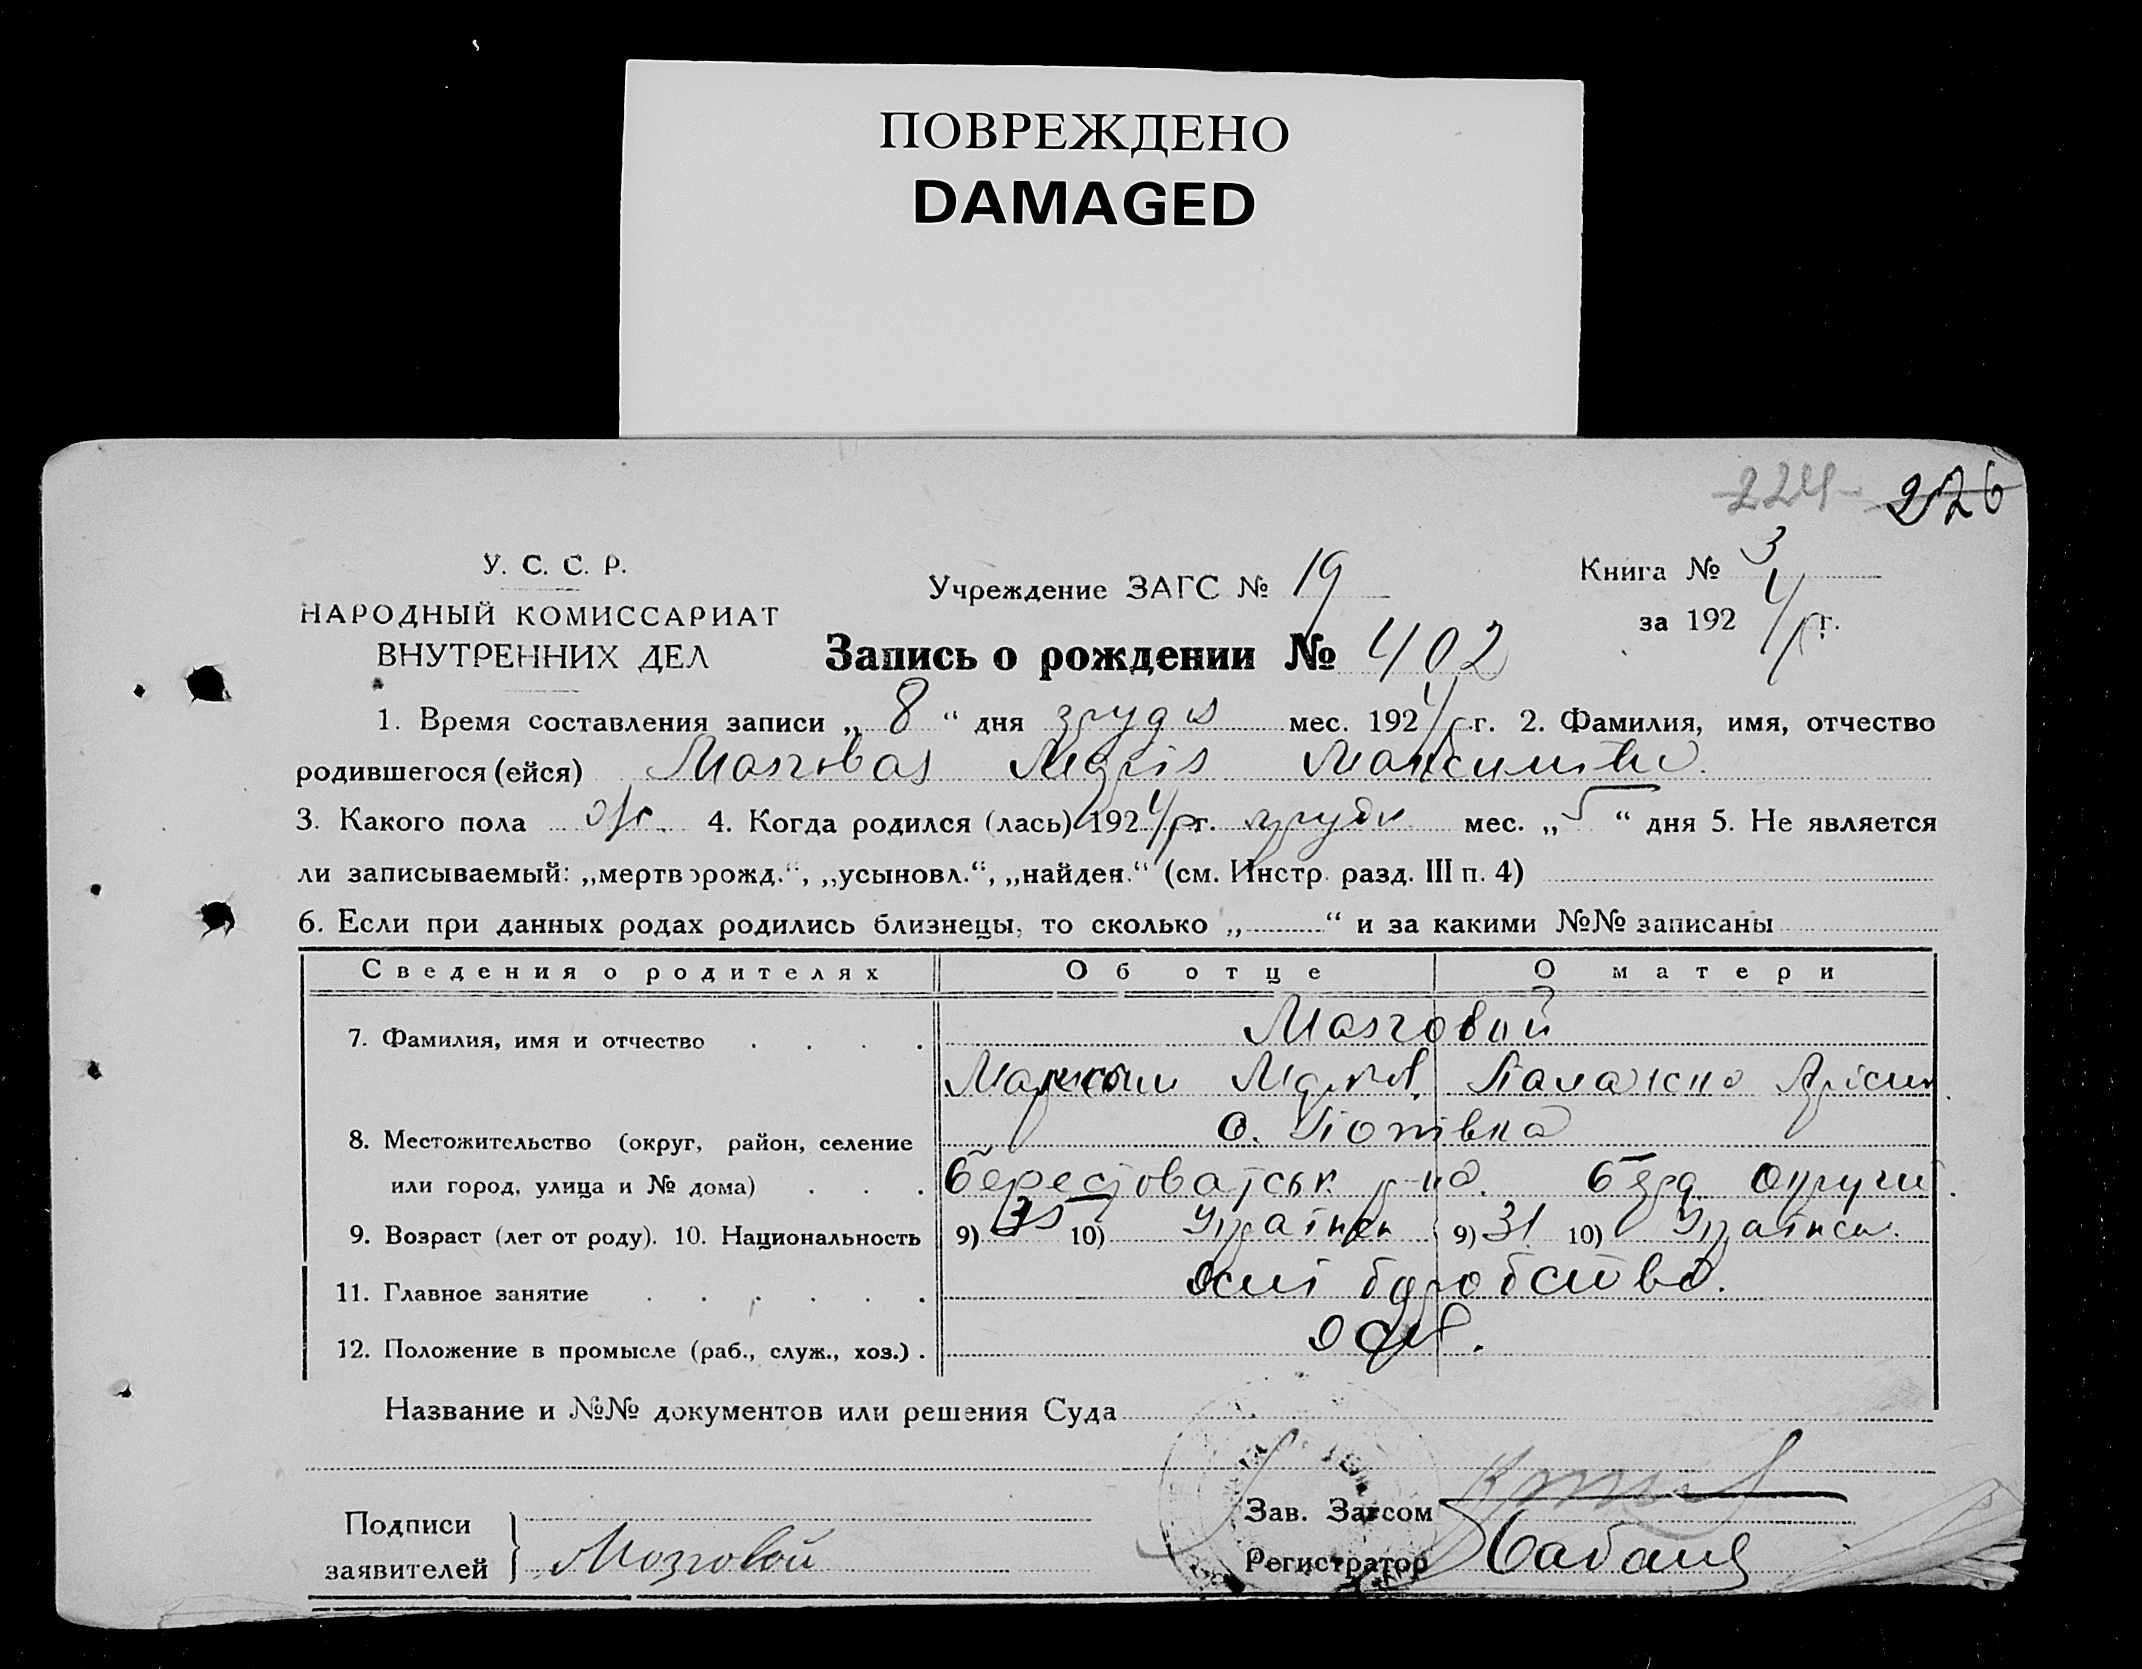 ПОВРЕЖДЕНО
DAMAGED
224 226
У. С. С. Р.
НАРОДНЫЙ КОМИССАРИАТ
ВНУТРЕННИХ ДЕЛ
Учреждение ЗАГС № 19
Книга № 3
за 1924 р г.
Запись о рождении № 402
1. Время составления записи „ 8 “ дня грудня мес. 1924 р г. 2. Фамилия, имя, отчество
родившегося (ейся) Мазговая Марія Максимівна
3. Какого пола ж. 4. Когда родился (лась) 1924 р г. грудн мес. „ 5 “ дня 5. Не является
ли записываемый: „мертворожд.“, „усыновл.“, „найден.“ (см. Инстр. разд. III п. 4)
6. Если при данных родах родились близнецы, то сколько „ “ и за какими №№ записаны
Сведения о родителях Об отце О матери
7. Фамилия, имя и отчество . . . . Мазговой
Максим Марков. Палажка
8. Местожительство (округ, район, селение с.
или город, улица и № дома) . . . Берестоватськ р-на. округи.
9. Возраст (лет от роду). 10. Национальность 9) 35 10) Українск 9) 31 10) Українск.
11. Главное занятие . . . . . .
12. Положение в промысле (раб., служ., хоз.) .
Название и №№ документов или решения Суда
Подписи
заявителей Мозговой
Зав. Загсом
Регистратор